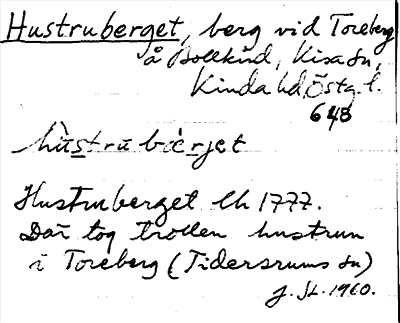 Hustruberget, berg vid Toreberg
å Bollkind, Kisa sn,
Kinda hd, Östg. l.
648
hùstrubǽrjet
Hustruberget lh 1777.
Där tog trollen hustrun
i Toreberg (Tidersrums sn)
J. St. 1960.